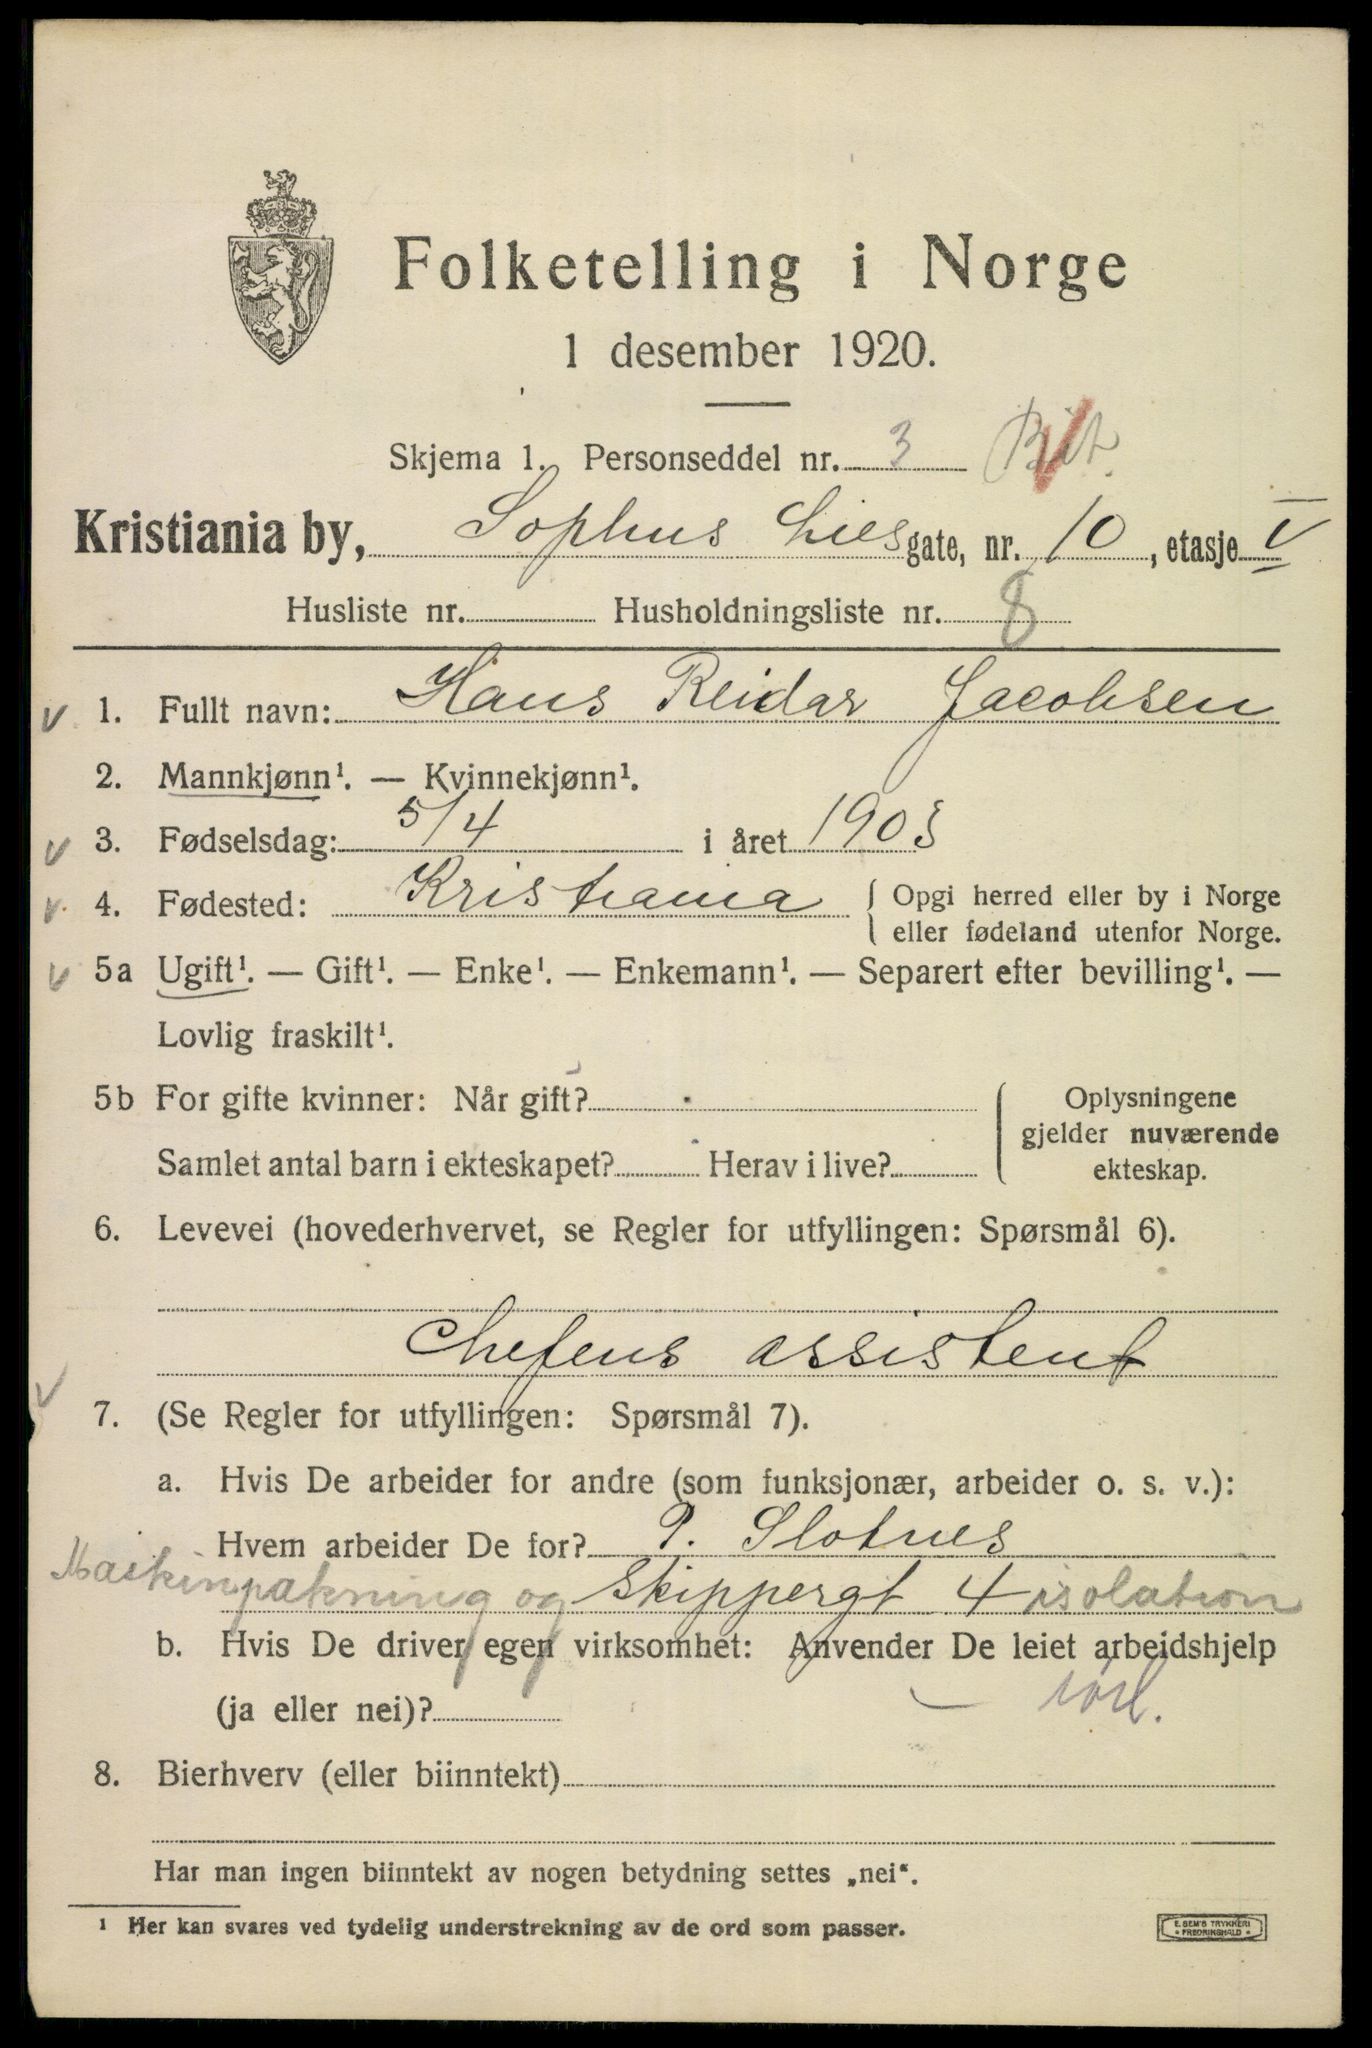 Folketelling i Norge
1 desember 1920.
Skjema 1. Personseddel nr. 3
Kristiania by, Sophus Lies gate, nr. 10, etasje V
Husliste nr. Husholdningsliste nr. 8
1. Fullt navn: Hans Reidar Jacobsen
2. Mannkjønn¹. — Kvinnekjønn¹.
3. Fødselsdag: 5/4 i året 1903
4. Fødested: Kristiania { Opgi herred eller by i Norge
eller fødeland utenfor Norge.
5a Ugift¹. — Gift¹. — Enke¹. — Enkemann¹. — Separert efter bevilling¹. —
Lovlig fraskilt¹.
5b For gifte kvinner: Når gift? Oplysningene
gjelder nuværende
Samlet antal barn i ekteskapet? Herav i live? ekteskap.
6. Levevei (hovederhvervet, se Regler for utfyllingen: Spørsmål 6).
Chefens assistent
7. (Se Regler for utfyllingen: Spørsmål 7).
a. Hvis De arbeider for andre (som funksjonær, arbeider o. s. v.):
Hvem arbeider De for? P. Slotnes
Maskinpakning og Skippergt 4 isolation
b. Hvis De driver egen virksomhet: Anvender De leiet arbeidshjelp
(ja eller nei)? —
8. Bierhverv (eller biinntekt)
Har man ingen biinntekt av nogen betydning settes „nei“.
¹ Her kan svares ved tydelig understrekning av de ord som passer.
E. SEM'S TRYKKERI
* FREDRIKSHALD *